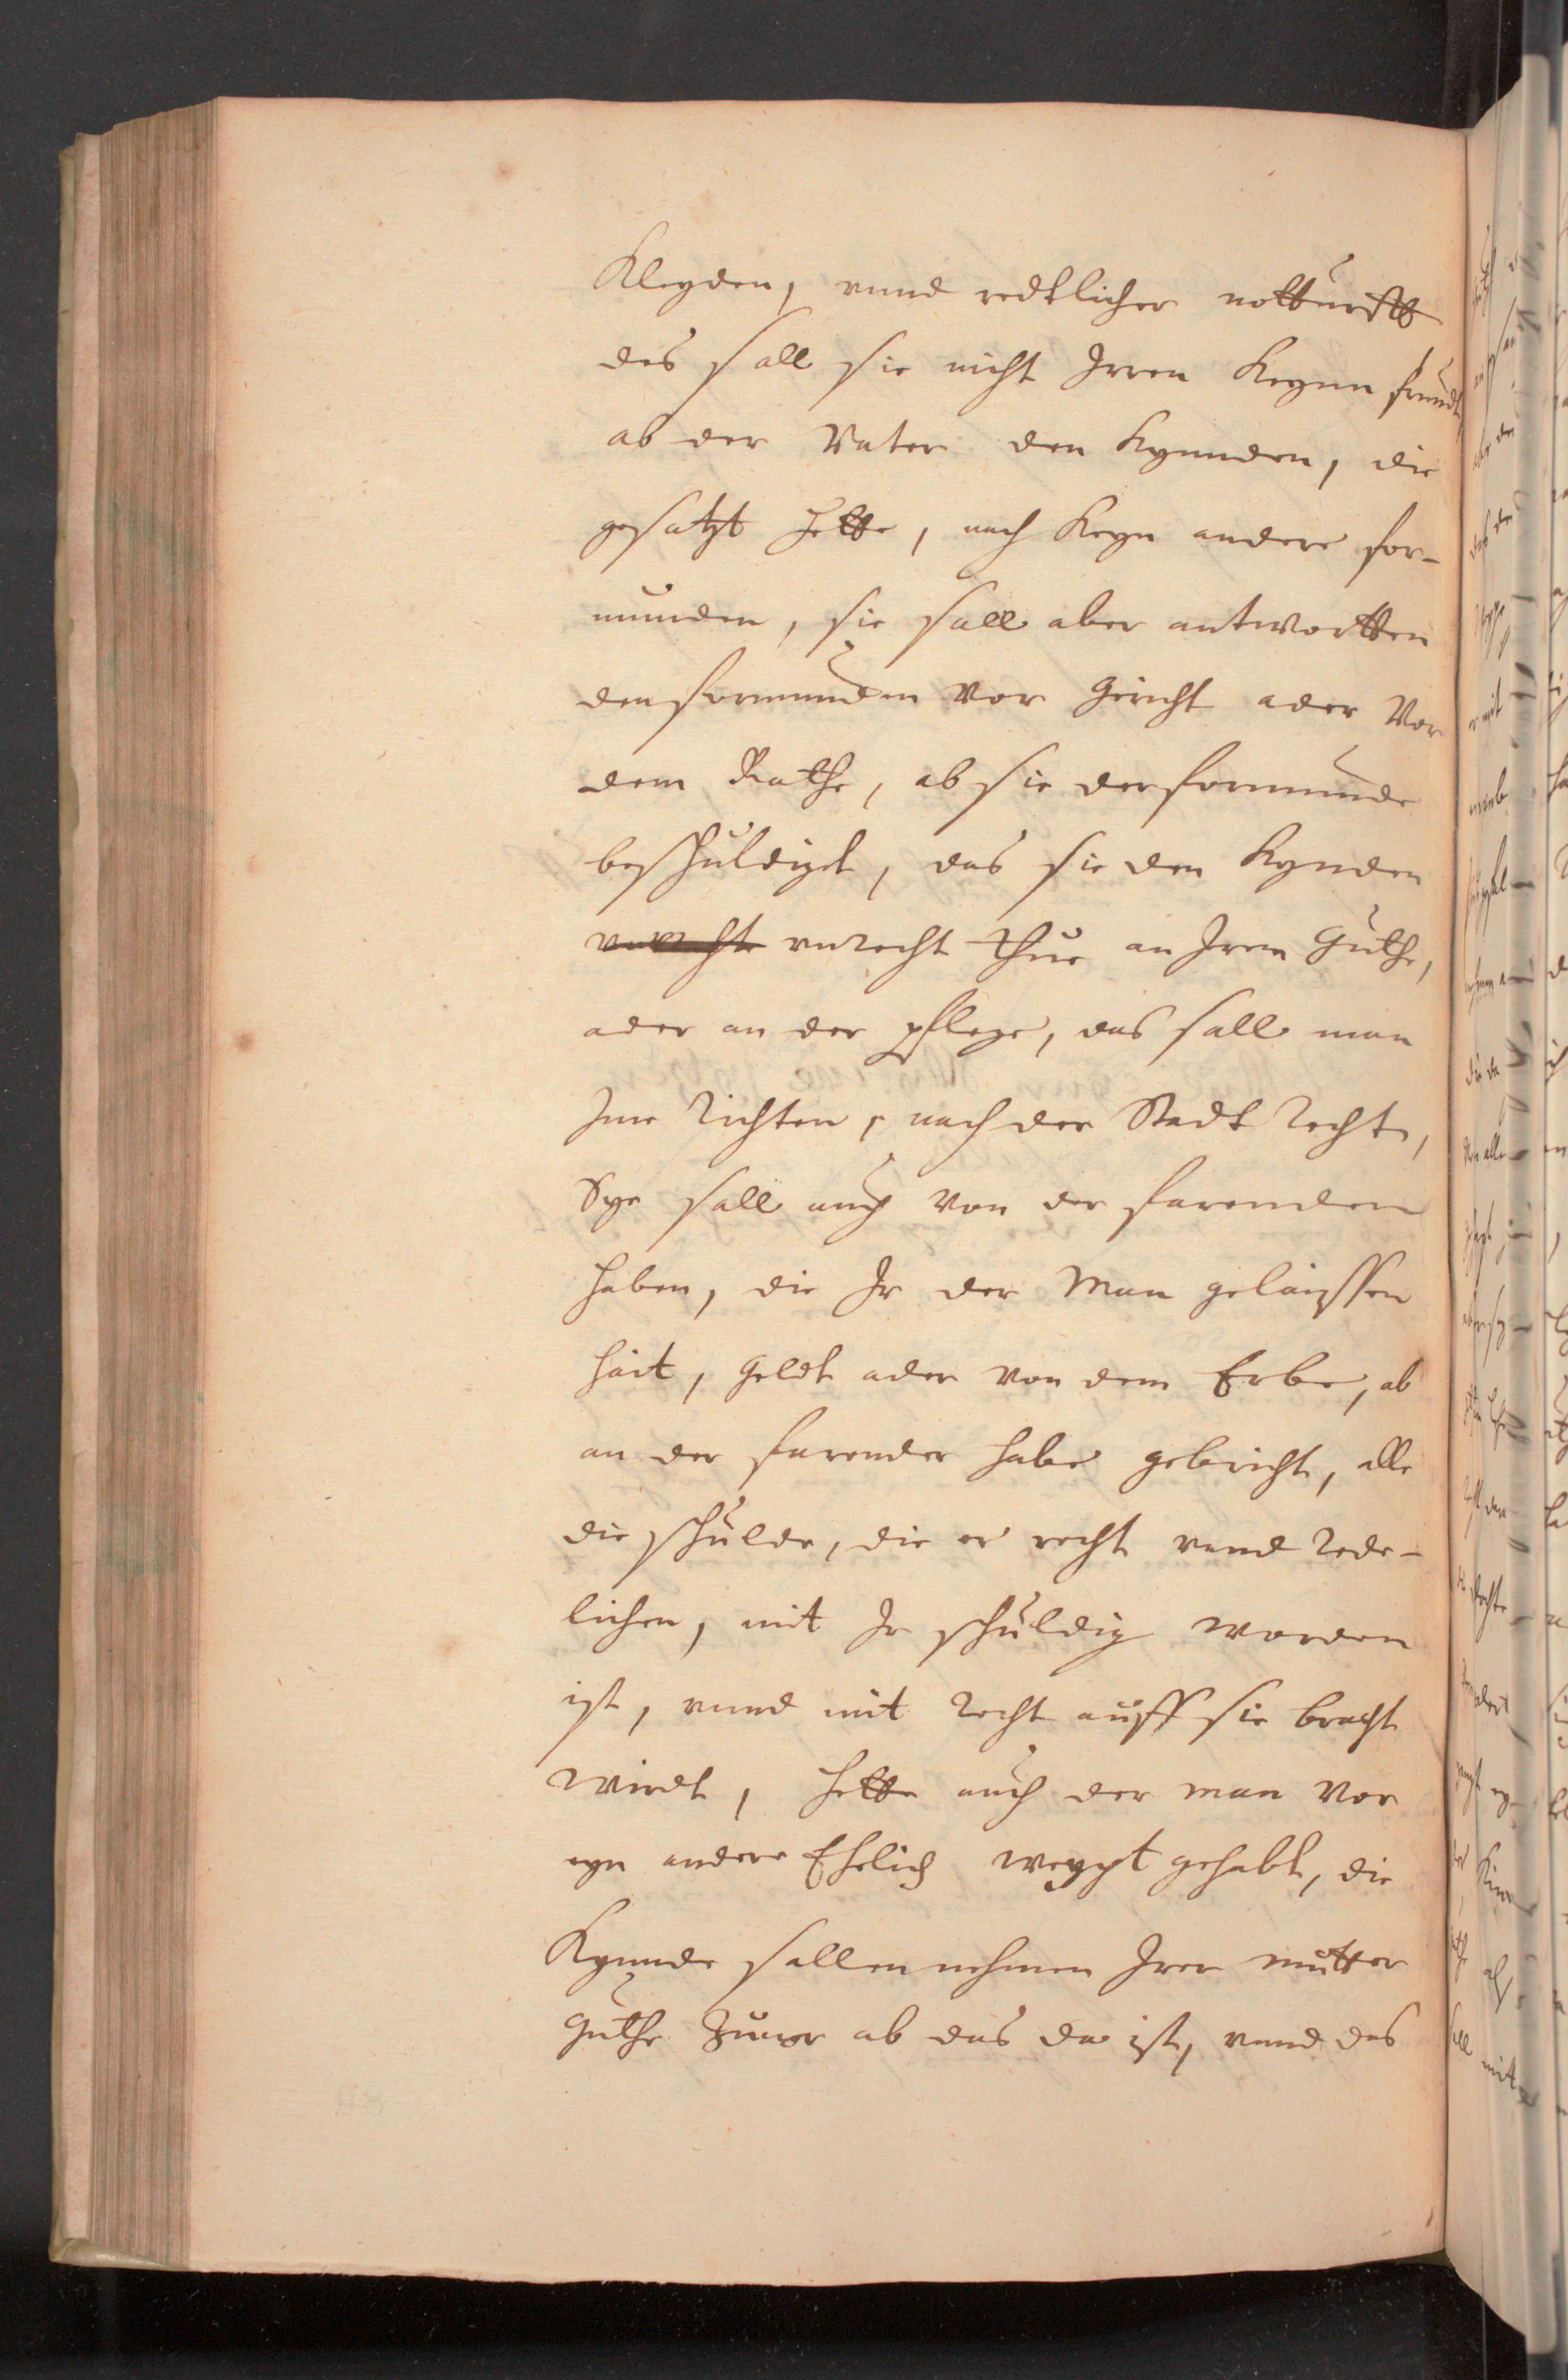 Kleyden, vnnd redtlicher notturfft
des sall sie nicht Irren Keynn frundt,
ab der Vater den Kynnden, die
gesatzt hette, nach Keyn andere for-
munden, sie sall aber antwortten
den formunden Vor Gericht ader Vor
dem Rathe, ab sie der formunde
beschuldigt, das sie den Kynden
vnrecht thue an Irem Guthe,
ader an der pflege, das sall man
Ime Richten, nach der Stadt Recht,
Sye sall auch von der farenden
haben, die Ir der Man gelaissen
hait, geldt ader von dem Erbe, ab
an der farender habe gebricht, alle
die schulde, die er recht vnnd Rede-
lichen, mit Ir schuldig worden
ist, vnnd mit Recht auff sie bracht
wirdt, hette auch der man Vor
eyn andere Ehelich gehabt, die
Kynnde sallen nehmen Irer mutter
Guthe Zuuor ab das da ist, vnnd das